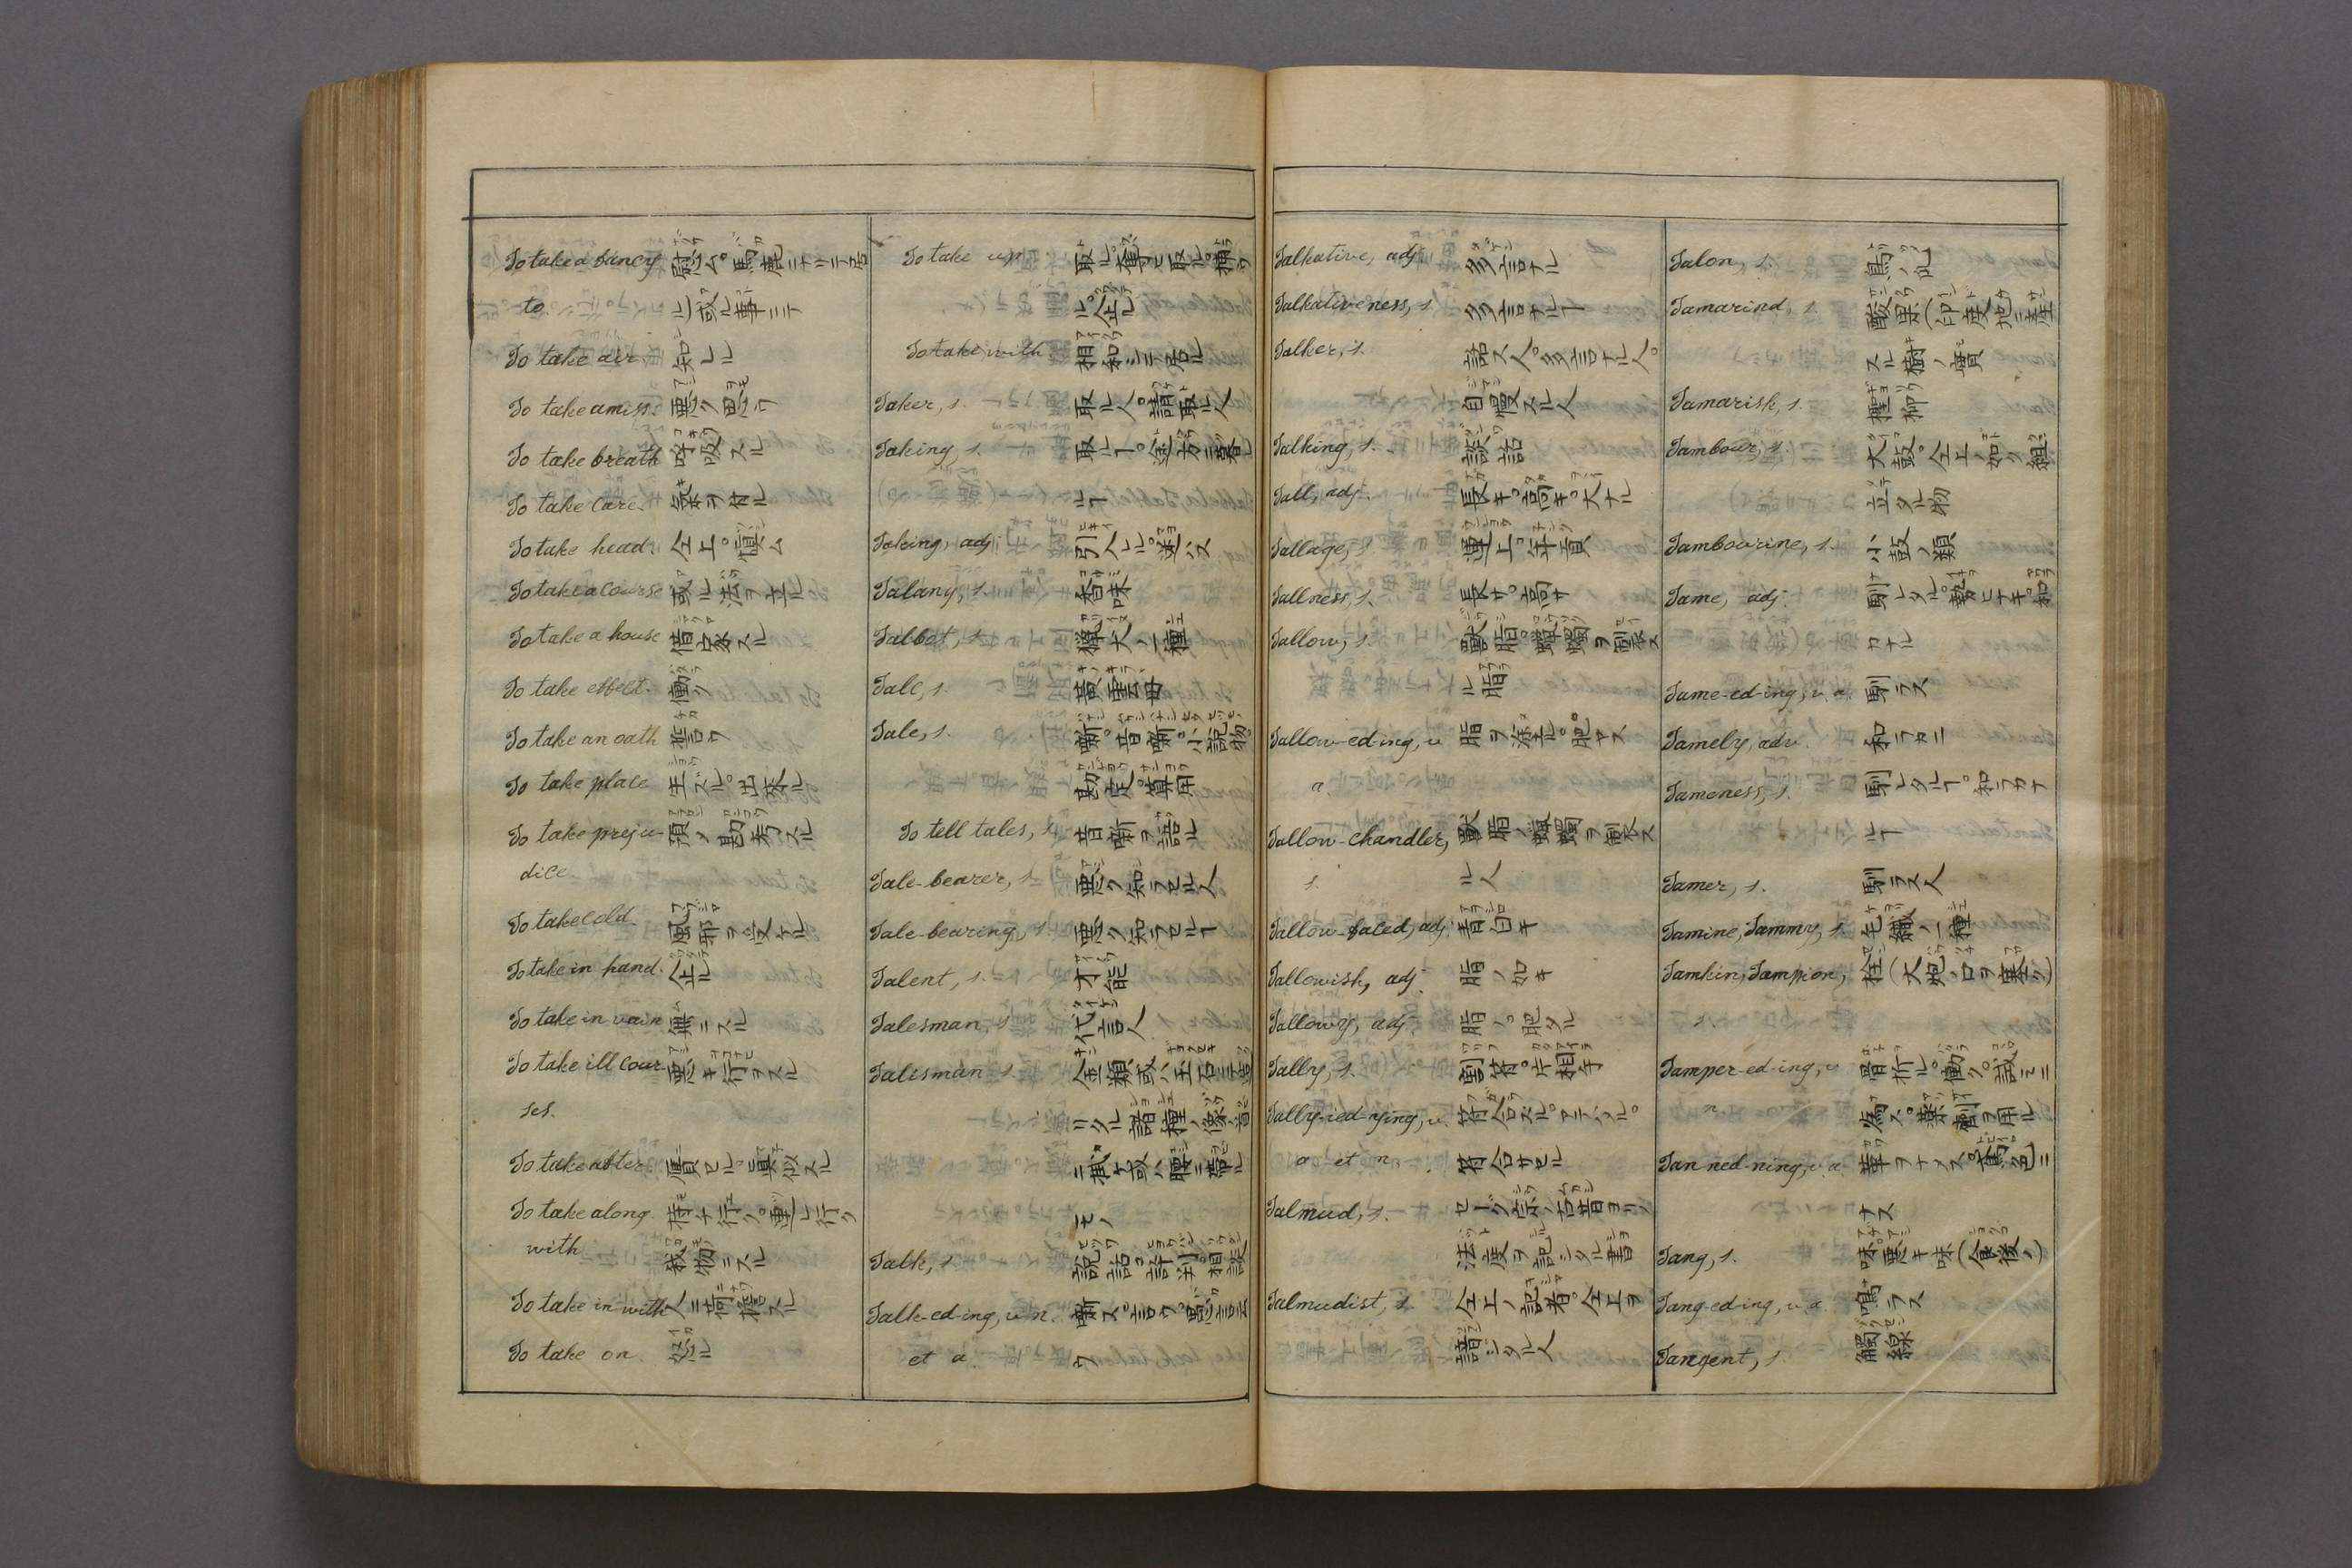 To take a fancy
to
To take air 知レル
To take amiss. 悪ク思フ
To take breath 呼吸スル
To take care. 氣ヲ付ル
To take head. 仝上。慎ム
To take a course 或ル法ヲ立ル
To take a house 借家スル
To take effect. 働ク
To take an oath 誓フ
To take place 生ズル。出来ル
To take preju- 預ノ勘考スル
dice
To take cold. 風邪ヲ受ケル
To take in hand. 企ル
To take in vain 無ニスル
To take ill cour- 悪キ行ヲスル
ses.
To take after 真似スル
To take along. 持チ行ク。連レ行ク
with 我物ニスル
To take in with 人ニ荷擔スル
To take on. 怒ル
To take up.
ル。企ル
To take with 相和シテ居ル
Taker, s. 取ル人。請取ル人
Taking, s.
ルヿ
Taking, adj 引入レル。迷ハス
Talang, s.
Talbot, s. 獵犬ノ一種
Talc, s. 黄雲母
Tale, s. 噺。昔噺。小説物。
勘定。算用
To tell tales, s. 昔噺ヲ語ル
Tale-bearer, s. 悪ク知ラセル人
Tale-bearing, s. 悪ク知ラセルヿ
Talent, s. 才能
Talesman, s. 代言人
Talisman s. 金類或ハ玉石ニ造
リタル諸種ノ像
モノ
Talk, s. 説話。評判。相談
Talk-ed-ing, v. n.
et a. フ
Talkative, adj. 多言ナル
Talkativeness, s. 多言ナルヿ
Talker, s. 話ス人。多言ナル人。
自慢スル人
Talking, s. 談話
Tall, adj. 長キ。高キ。大ナル
Tallage, s. 運上。年貢
Tallness, s. 長サ。高サ
Tallow, s. 獸脂。蠟燭ヲ製ス
ル脂
Tallow-ed-ing, v. 脂ヲ塗ル。肥ヤス
a.
Tallow-chandler, 獸脂ノ蠟燭ヲ製ス
s. ル人
Tallow-faced, adj. 青白キ
Tallowish, adj. 脂ノ如キ
Tallowy, adj.
Tally, s. 割符。片相手
Tally-ied-ying, v. 符合スル。
a et n. 符合サセル
Talmud, s.
法度ヲ記シタル書
Talmudist, s. 仝上ノ記者。仝上ヲ
諳ジタル人
Talon, s. 鳥ノ爪
Tamarind, s. 酸果(印度地ニ産
スル樹ノ實
Tamarisk, s. 檉柳
Tambour, s. 大鼓。仝上ノ如ク組
立タル物
Tambourine, s. 小鼓ノ類
Tame, adj. 馴レタル。勢ヒナキ。和
カナル
Tame-ed-ing, v. a. 馴ラス
Tamely, adv. 和ラカニ
Tameness, s. 馴レタルヿ。和ラカナ
ルヿ
Tamer, s. 馴ラス人
Tamine, Tammy, s. 毛織ノ一種
Tamkin, Tampion, 栓(大炮ノ口ヲ塞ク)
s.
Tamper-ed-ing, v. 骨折ル。働ク。試ミニ
n. 為ス。藥劑ヲ用ル
Tan ned-ning, v. a. 革ヲナメス。鳶色ニ
ナス
Tang, s. 味。悪キ味(食後ノ)
Tang-ed-ing, v. a. 鳴ラス
Tangent, s. 觸線